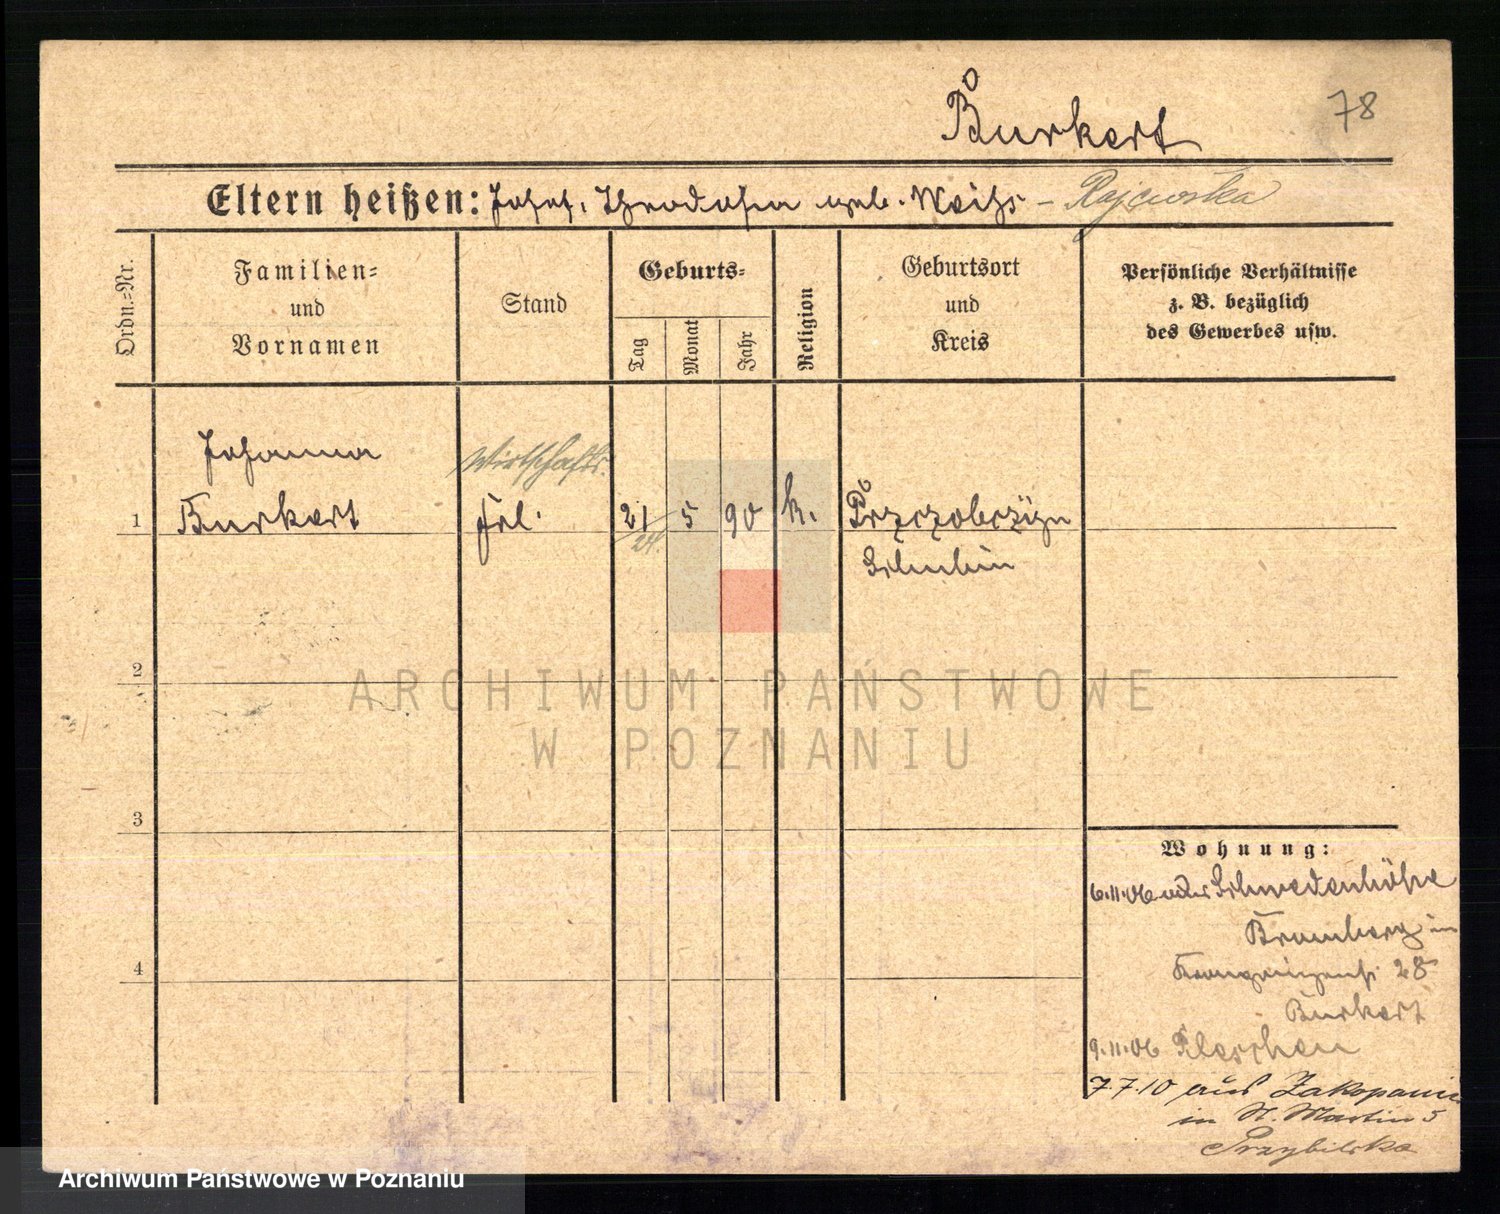 Burkert
78
Eltern heißen: Josef, Theodosia geb. Weihs - Rajewska
Ordn.=Nr.
Familien=
und
Vornamen
Stand
Geburts=
Tag
Monat
Jahr
Religion
Geburtsort
und
Kreis
Persönliche Verhältnisse
z. B. bezüglich
des Gewerbes usw.
Johanna
Wirtschafts.
1
Burkert
Frl.
21
5
90
k.
24.
Schubin
2
ARCHIWUM PAŃSTWOWE
W POZNANIU
3
Wohnung:
6.11.06 Schwedenhöhe
Bromberg in
28
Burkert
4
9.11.06 Pleschen
7.7.10 aus Zakopane
in St. Martin 5
Przybilska
Archiwum Państwowe w Poznaniu